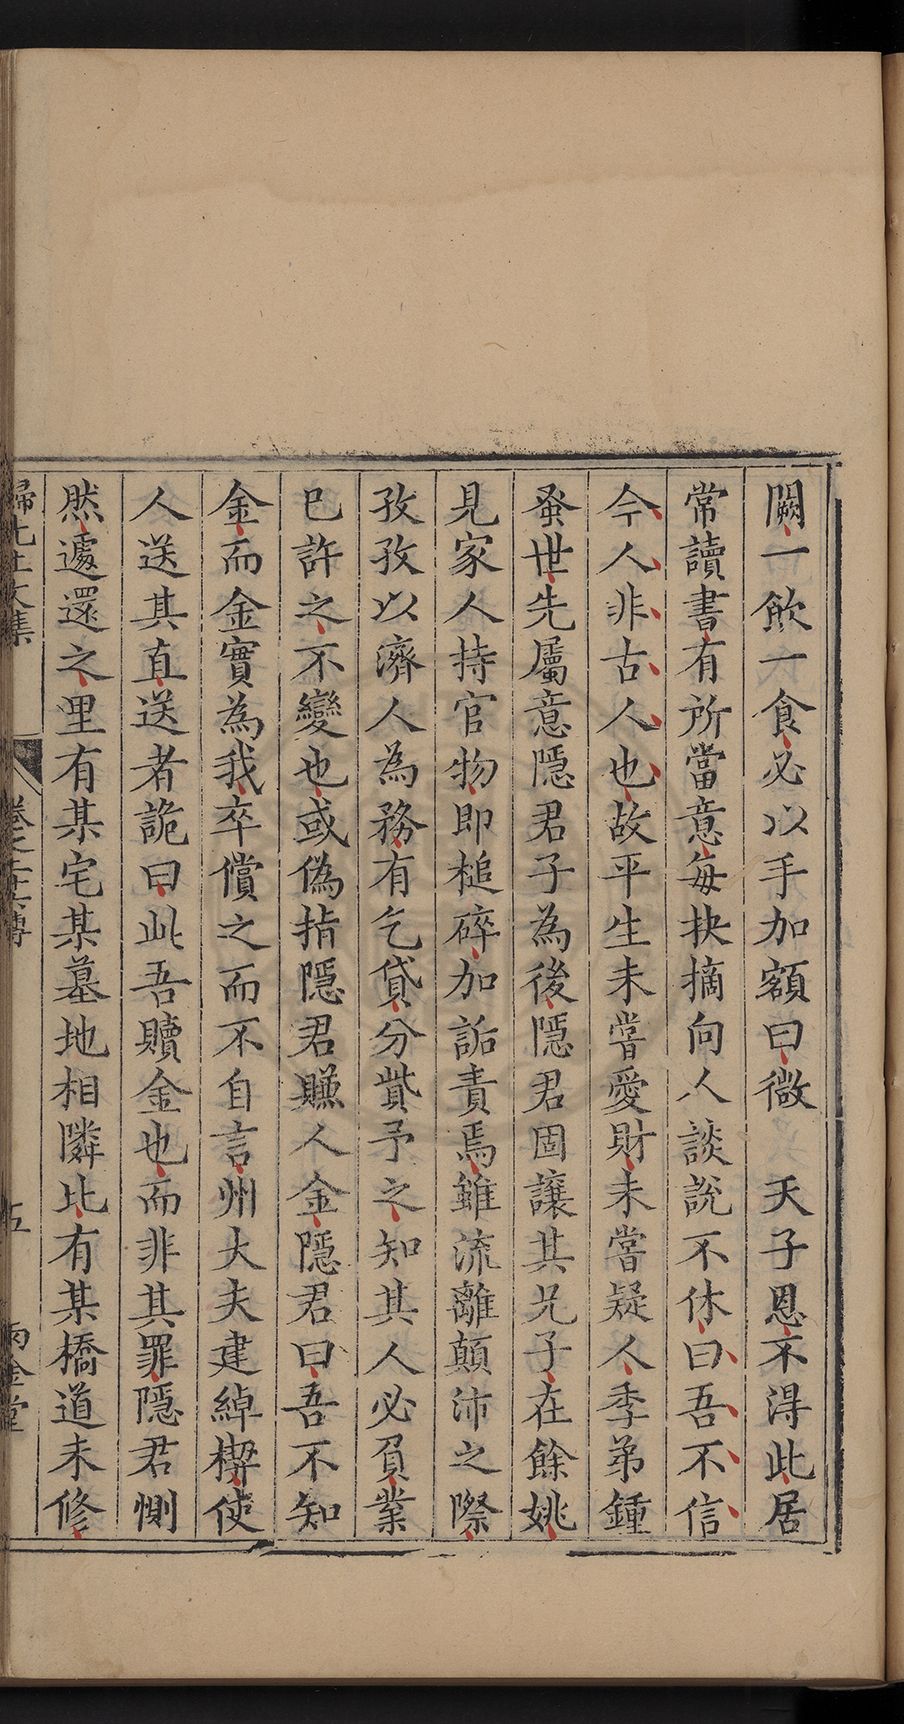 闕一飲一食必以手加額曰微　天子恩不得此居
常讀書有所當意每抉摘向人談說不休曰吾不信
今人非古人也故平生未嘗愛財未嘗疑人季弟鍾
蚤世先屬意隱君子為後隱君固讓其兄子在餘姚
見家人持官物即槌碎加詬責焉雖流離顛沛之際
孜孜以濟人為務有乞貸分貲予之知其人必負業
已許之不變也或偽指隱君賺人金隱君曰吾不知
金而金實為我卒償之而不自言州大夫建綽楔使
人送其直送者詭曰此吾贖金也而非其罪隱君惻
然遽還之里有某宅某墓地相隣比有某橋道未修
文集
五